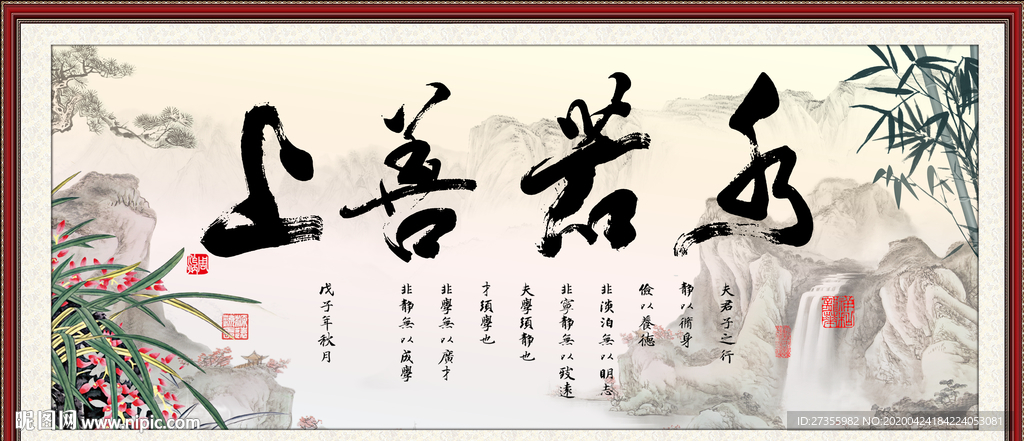 上善若水
夫君子之行
靜以脩身
儉以養德
非淡泊無以明志
非寧靜無以致遠
夫學須靜也
才須學也
非學無以廣才
非靜無以成學
戊子年秋月
昵图网 www.nipic.com
ID:27355982 NO:20200424184224053081